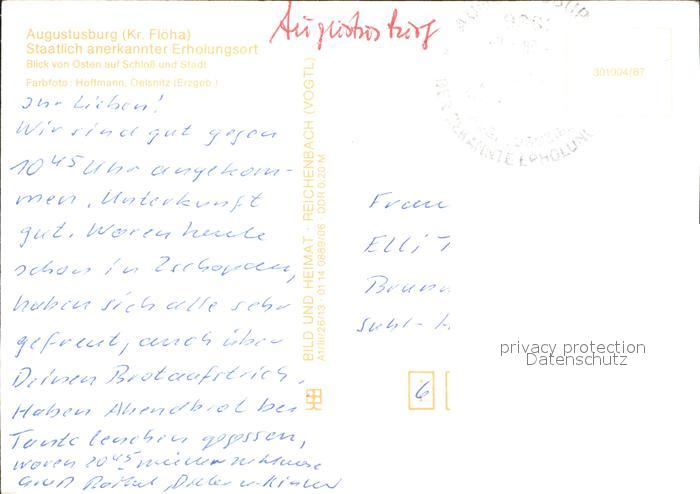 Augustusburg (Kr. Flöha)
Staatlich anerkannter Erholungsort
Blick von Osten auf Schloß und Stadt
Farbfoto: Hoffmann, Oelsnitz (Erzgeb.)
Ihr Lieben!
Wir sind gut gegen
10 45 Uhr angekom-
men, Unterkunft
gut. Waren heute
schon in Zschopau,
haben sich alle sehr
gefreut, auch über
Deinen Brotaufstrich.
Haben Abendbrot bei
Tante Lenchen gegessen,
waren 20 45 wieder zu Hause
Gruß Dieter u. Kinder
BILD UND HEIMAT · REICHENBACH (VOGTL)
A1/III/26/13 · 01 14 0889/06 · DDR 0,20 M
301004/87
Frau
Elli
Suhl-
6
privacy protection
Datenschutz